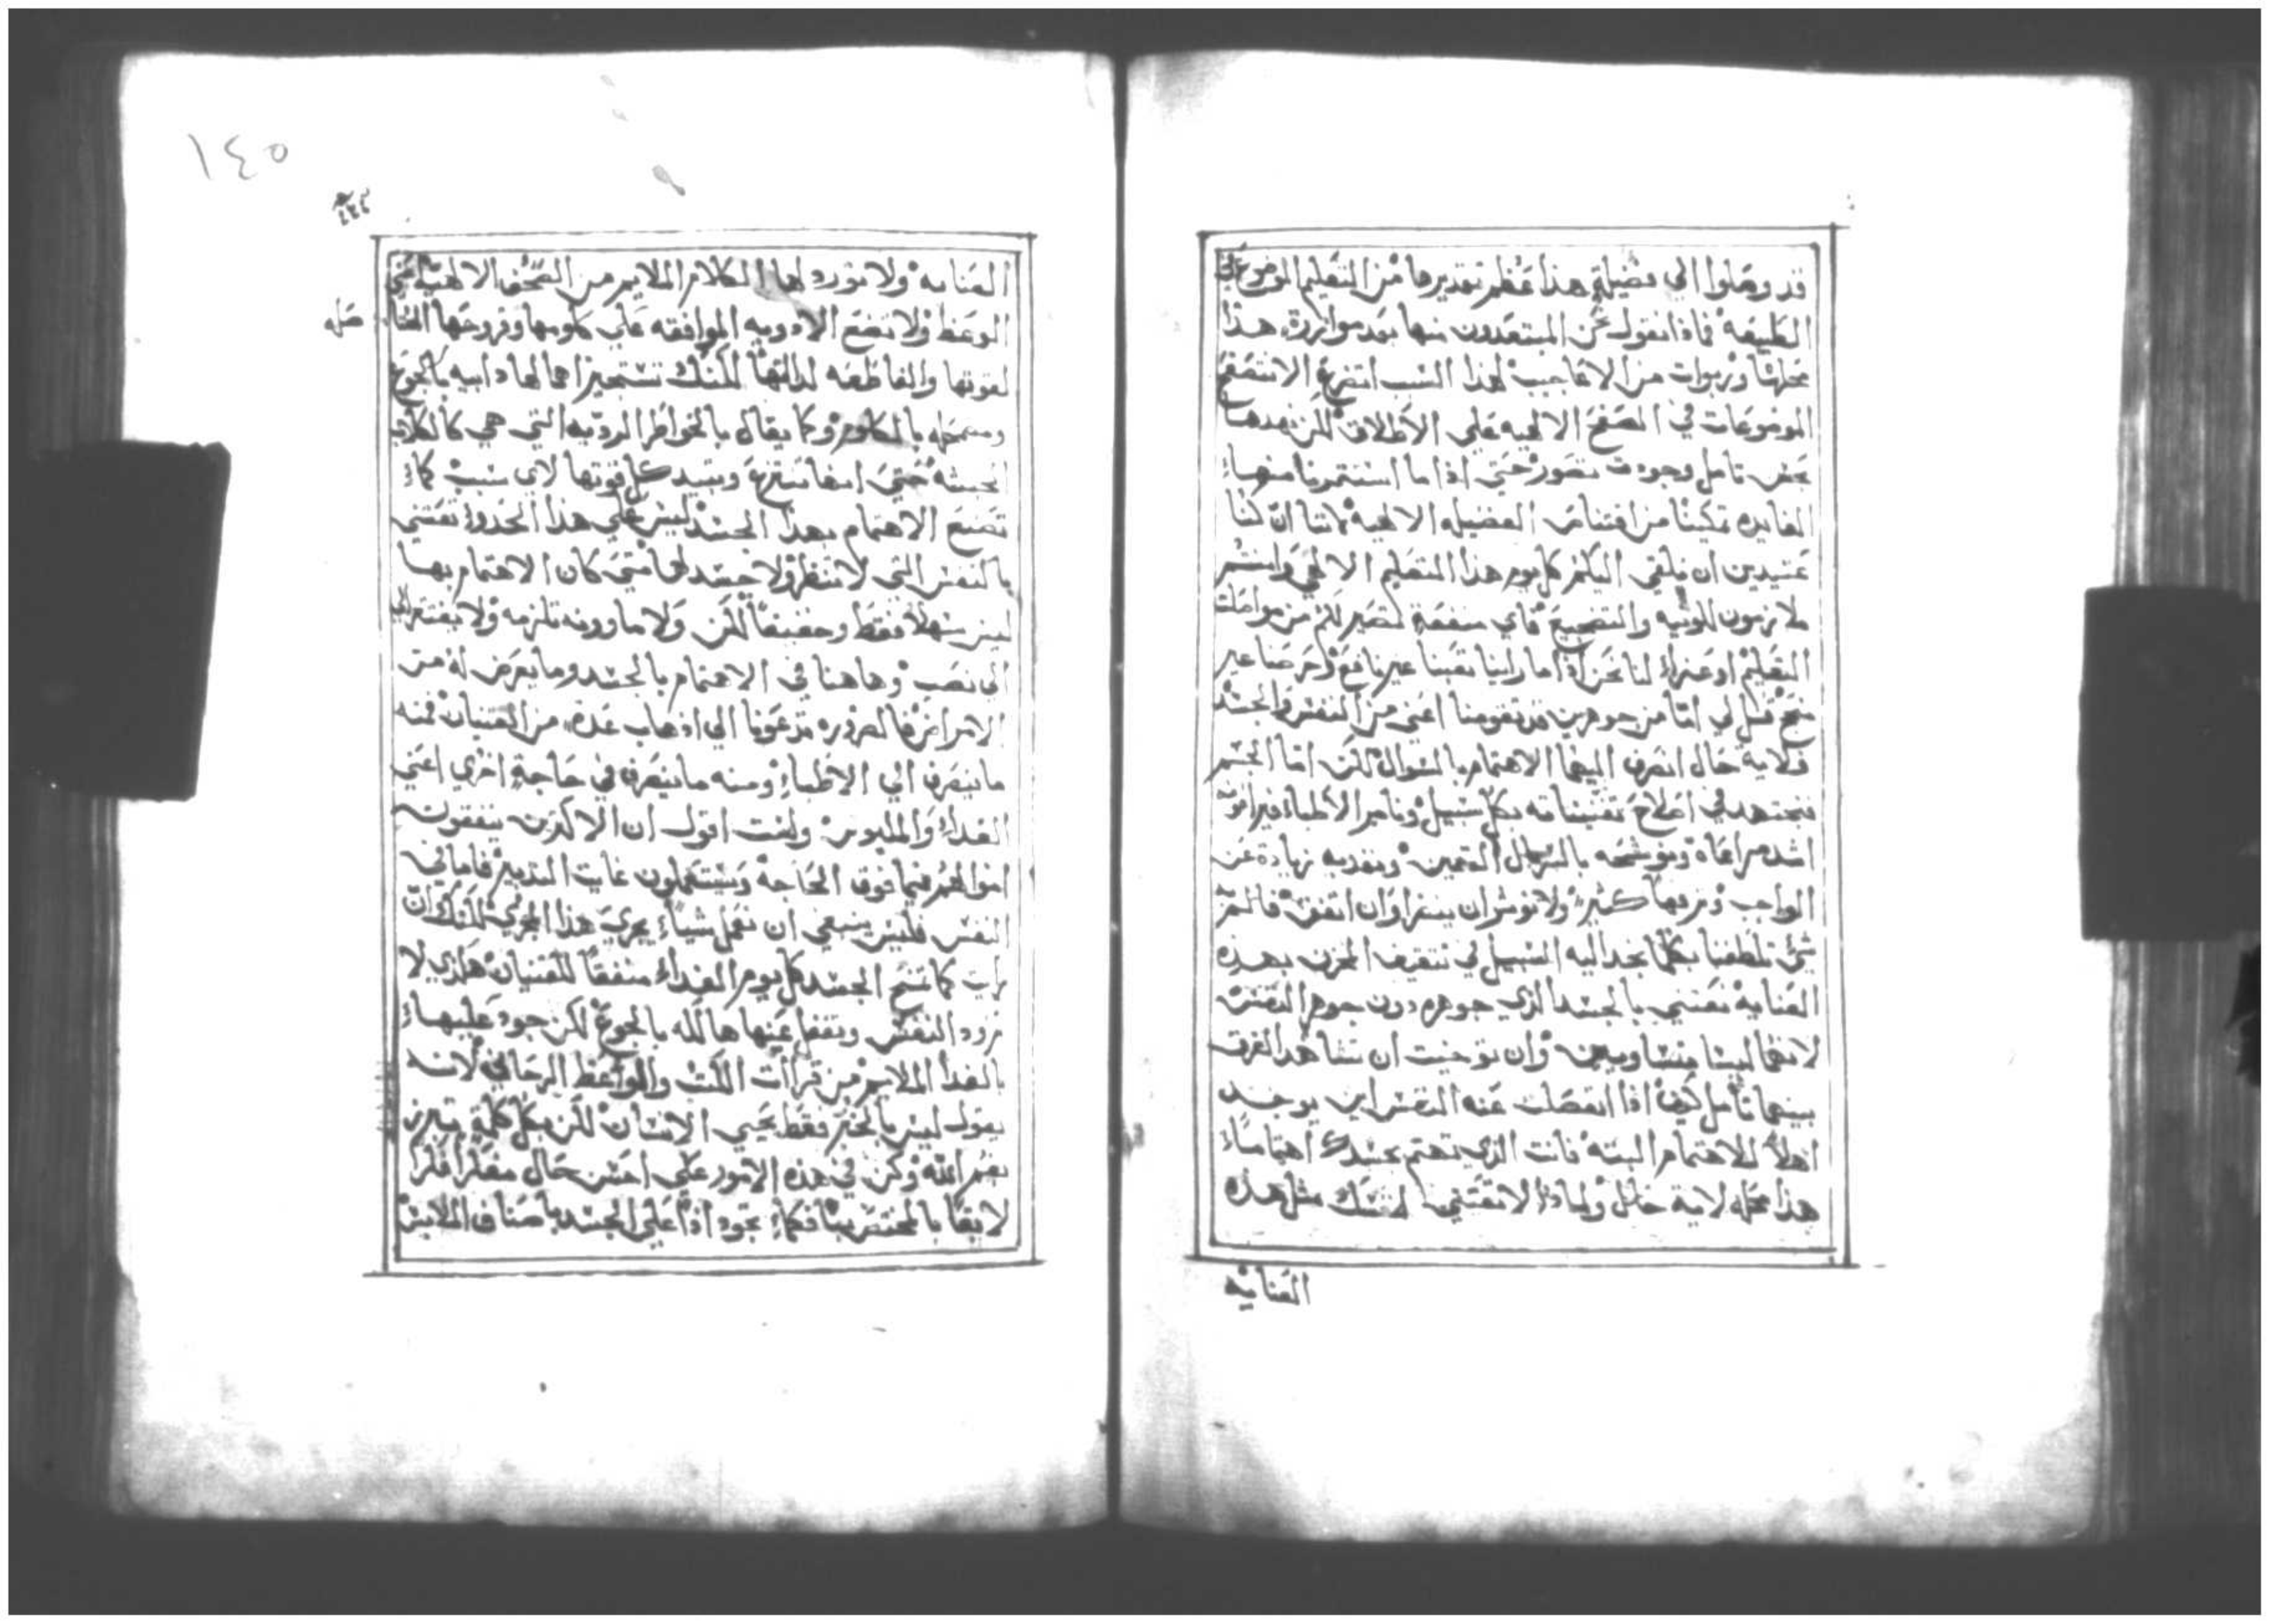 قد وصلوا الي فضيلةٍ هذا عظم تقديرها من التعليم الموضوع في
الطبيعه فماذا نقول نحن المستعدون منها بعد موازرة هذا
محلها وربوات من الاعاجيب لهذا السبب اتضرع الا نتصفح
الموضوعات في الصحف الالهيه علي الاطلاق لكن نهدها
بمحض تامل وجودت تصور حتي اذا ما استتمرنا منها
الفايده تمكينا من اقتنا الفضيله الالهية لاننا ان كنا
عتيدين ان نلقي اليكم كل يوم هذا التعليم الالهي وانتم
ملازمون للونيه والتضجيع فاي منفعةٍ تصير لكم من مواصلت
التعليم او عزاء لنا نحن اذا ما راينا تعبنا غير نافع وحرصنا غير
منجح قل لي اما من جوهرين قد تقومنا اعني من النفس والجسد
فلاية حال انصرف اليهما الاهتمام بالسوال لكن اما الجسم
فنجتهد في اصلاح تقنيناته بكل سبيل ونامر الاطباء فيراعونه
اشد مراعاه ونوشحه بالسربال الثمين ونغديه زيادة عن
الواجب ونرفها كثير ولا نوثر ان ينضر وان اتفق فالم
شي تلطفنا بكلما نجد اليه السبيل في تثقيف المحزن بهذه
العناية نعتني بالجسد الذي جوهره دون جوهر النفس
لانهما ليسا متساويين وان توخيت ان تشاهد الفرق
بينهما تامل كيف اذا انفصلت عنه النفس اين يوجد
اهلاً للاهتمام البته فانت الذي تهتم بجسدك اهتماماً
هذا محله لاية حال ولماذا لا تعتني لنفسك مثل هذه
العنايه
١٤٥
العنايه ولا تورد لها الكلام الملايم من الصحف الالهية اعني
الوعظ ولا تضع الادويه الموافقه علي كلومها وقروحها الخا
صله
لقوتها والقاطعه لدالتها لكنك تستجيز اهمالها دايبه بالجوع
بالكلوم وكما يقال بالخواطر الرديه التي هي كالكلاب
حتي انها تنتزع وتبيد كل قوتها لاي سبب كما
تصنع الاهتمام بهذا الجسد ليس علي هذا الحدوا تعتني
بالنفس التي لا تنظر ولا جسد لها متي كان الاهتمام بها
ليس سهلاً فقط وخفيفاً لكن ولا ما وونه تلزمه ولا يفتقر
الي نصب وهاهنا في الاهتمام بالجسد وما يعرض له من
الامراض فالضروره تدعونا الي اذهاب عدة من القنيان فمنه
ما ينصرف الي الاطباء ومنه ما ينصرف في حاجةٍ اخري اعني
الغداء والملبوس ولست اقول ان الاكثرين ينفقون
اموالهم فيما فوق الحاجة ويستعملون غايت التدبير فاما في
النفس فليس ينبغي ان نعمل شياً يجري هذا المجري لكنك ان
رايت كما تنح الجسد كل يوم الغداء منفقاً للقنيان هكذي لا
تزدد النفس وتغفل عنها هالكه بالجوع لكن جود عليها
بالغدا الملايم من قراآت الكتب والمواعظ الروحاني لانه
يقول ليس بالخبز فقط يحيي الانسان لكن بكل كلمةٍ تبرز
بفم الله وكن في هذه الامور علي احسن حال مفكراً فكراً
لايقاً بالمختص بنا فكما تجود اذاً علي الجسد باصناف الملابس